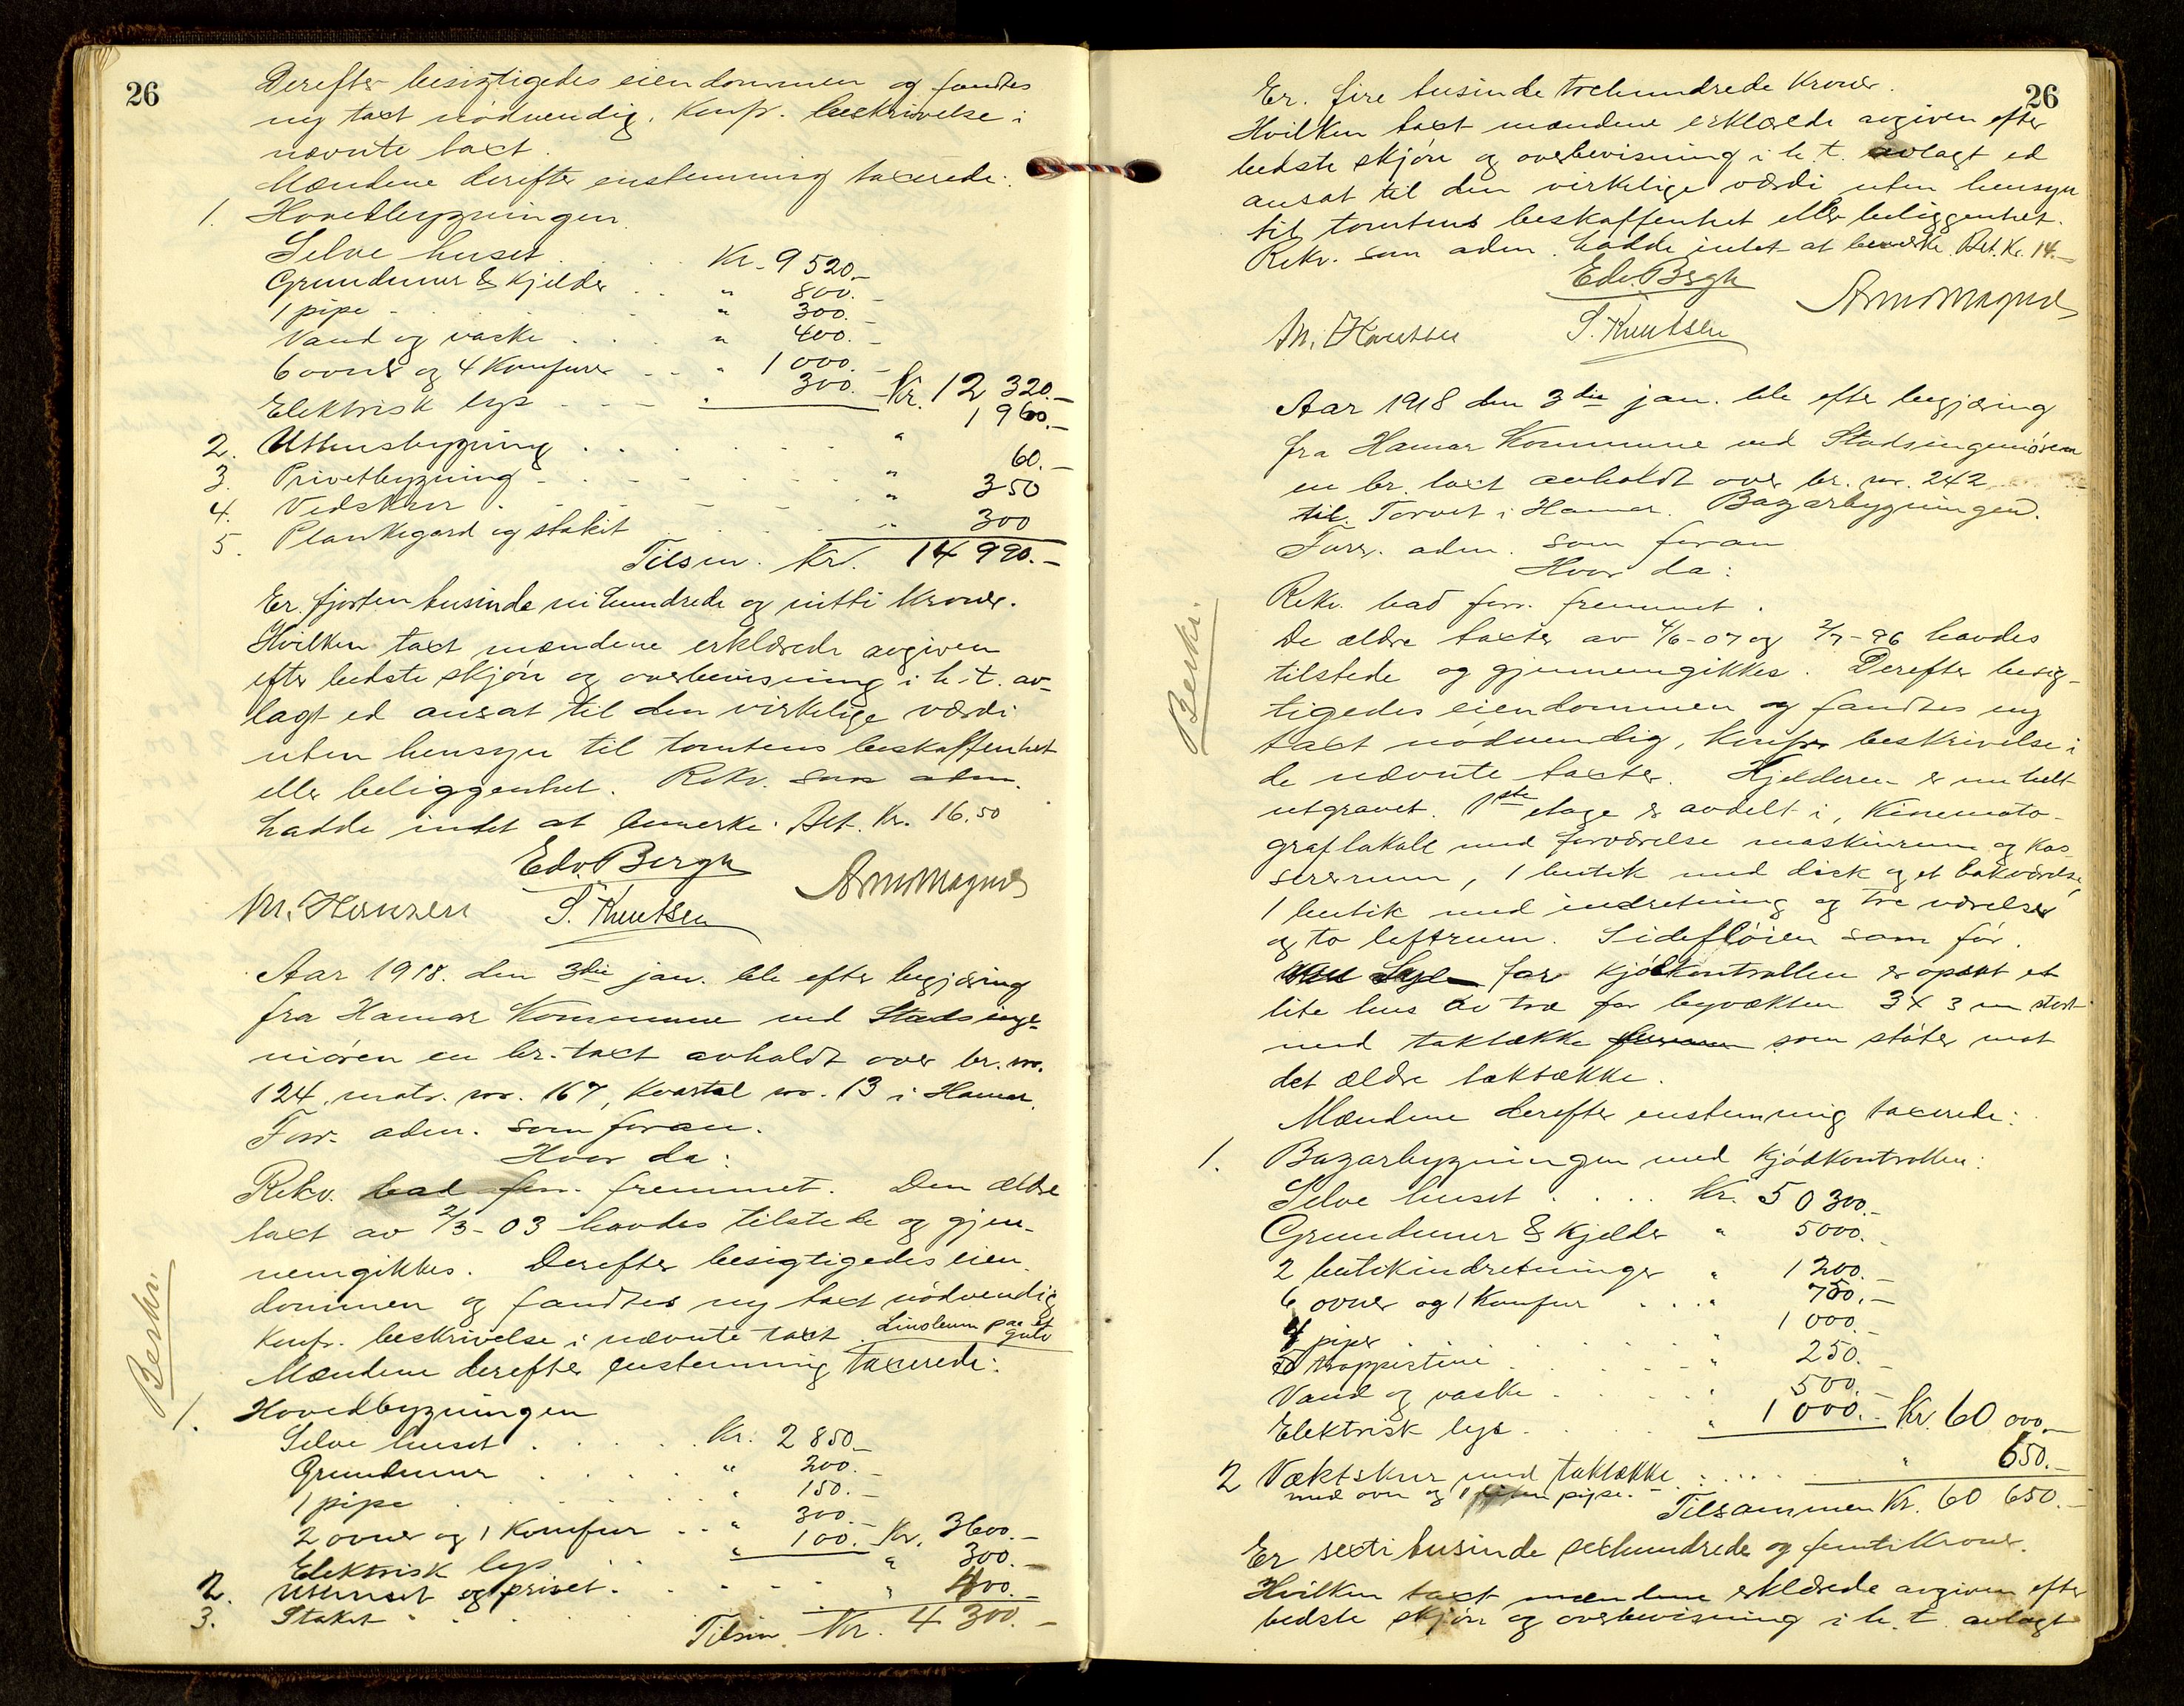 26
Derefter besigtigedes eiendommen og fandtes
ny taxt nödvendig. Konfr. beskrivelse i
nævnte taxt.
Mændene derefter enstemmig taxerede:
1. Hovedbygningen
Selve huset . . . Kr. 9 520.-
Grundmur & Kjelder . . " 800.-
1 pipe - . . . " 300.-
Vand og vaske . . . " 400.-
6 ovner og 4 Komfurer . . " 1 000.-
Elektrisk lys - - - " 300. Kr. 12 320.-
2. Uthusbygning . . . . " 1 960.-
3. Privetbygning - . . . " 60.-
4. Vedskur . . . . " 350
5. Plankegard og stakit . . . " 300
Tilsm. Kr. 14 990.-
Er. fjorten tusinde ni hundrede og nitti Kroner.
Hvilken taxt mændene erklærede avgiven
efter bedste skjön og overbevisning i h. t. av-
lagt ed ansat til den virkelige værdi
uten hensyn til tomtens beskaffenhet
eller beliggenhet. Rekv. som adm.
hadde intet at bemerke. Bet. Kr. 16.50
Edv. Bergh
M. Hansen S. Knutsen
Aar 1918. den 3die jan. ble efter begjæring
fra Hamar Kommune ved Stadsinge-
niören en br. taxt avholdt over br. no.
124, matr. no. 167, Kvartal no. 13 i Hamar.
Forr. adm. som foran.
Hvor da:
Rekv. bad forr. fremmet. Den ældre
taxt av 2/3-03 havdes tilstede og gjen-
nemgikkes. Derefter besigtigedes eien-
dommen og fandtes ny taxt nödvendig
Konfr. beskrivelse i nævnte taxt. Linoleum paa et gulv
Mændene derefter enstemmig taxerede:
Beskr.
1. Hovedbygningen
Selve huset . . . . Kr. 2 850.-
Grundmur . . . . " 200.-
1 pipe . . . . " 150.-
2 ovner og 1 Komfur . . " 300.-
Elektrisk lys . . " 100. Kr. 3600.-
2. Uthuset og privet. . . . . " 300.-
3. Staket . . . . " 400.-
Tilsm. Kr. 4 300.-
26
Er. fire tusinde trehundrede Kroner.
Hvilken taxt mændene erklærede avgiven efter
bedste skjön og overbevisning i h. t. avlagt ed
ansat til den virkelige værdi uten hensyn
til tomtens beskaffenhet eller beliggenhet.
Rekv. som adm. hadde intet at bemerke. Bet. Kr. 14.-
Edv. Bergh
M. Hansen S. Knutsen
Aar 1918 den 3die jan. ble efter begjæring
fra Hamar Kommune ved Stadsingeniören
en br. taxt avholdt over br. no. 242
til Torvet i Hamar. Bazarbygningen.
Forr. adm. som foran
Hvor da:
Rekv. bad forr. fremmet.
De ældre taxter av 4/6-07 og 2/7-96 havdes
tilstede og gjennemgikkes. Derefter besig-
tigedes eiendommen og fandtes ny
taxt nödvendig, Konfr. beskrivelse i
de nævnte taxter. Kjelderen er nu helt
utgravet. 1ste etage er avdelt i, Kinemato-
graflokale med forværelse maskinrum og kas-
sererrum, 1 butik med disk og et bakværelse,
1 butik med indretning og tre værelser
og to loftrum. Sidefløien som för.
for kjödkontrollen er opsat et
lite hus av træ for byvækten 3 x 3 m stort
med taktække som stöter mot
det ældre taktække.
Mændene derefter enstemmig taxerede:
Beskr.
1. Bazarbygningen med Kjödkontrollen:
Selve huset . . . Kr. 50 300.-
Grundmur & Kjelder " 5000.-
2 butikindretninger " 1 200.-
6 ovner og 1 Komfur . . " 750.-
4 piper . . . " 1 000.-
5 trappistini . . . " 250.-
Vand og vaske . . . " 500.-
Elektrisk lys . . . " 1 000.- Kr. 60 000.-
2 Væktskur med taktække . . . . " 650.-
med ovn og 1 liten pipe. -
Tilsammen Kr. 60 650.-
Er sexti tusinde sexhundrede og femti Kroner.
Hvilken taxt mændene erklærede avgiven efter
bedste skjön og overbevisning i h. t. avlagt